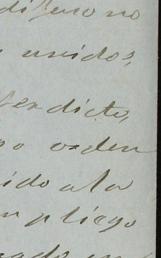 difuso no
unidos,
perdicto,
po orden
ido a la
n pliego